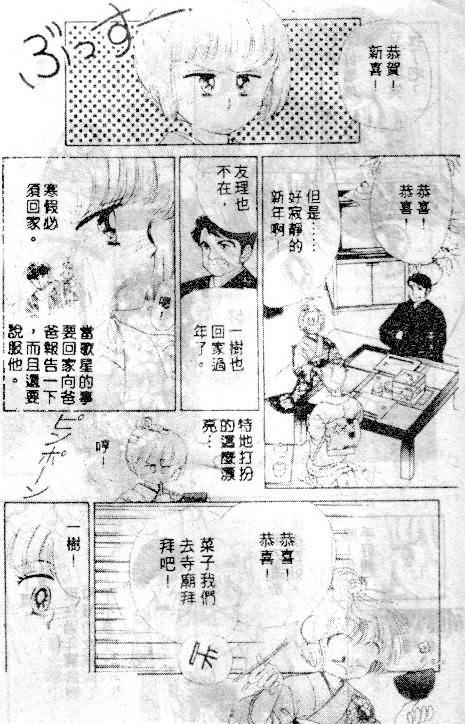 恭賀！
新喜！
ぶっすー
恭喜！
恭喜！
但是……
好寂靜的
新年啊！
友理也
不在，
一樹也
回家過
年了。
嗯！
寒假必
須回家。
當歌星的事
要回家向爸
爸報告一下
，而且還要
說服他。
特地打扮
的這麼漂
亮…
哼！
ピンポーン
恭喜！
恭喜！
菜子我們
去寺廟拜
拜吧！
咔
一樹！